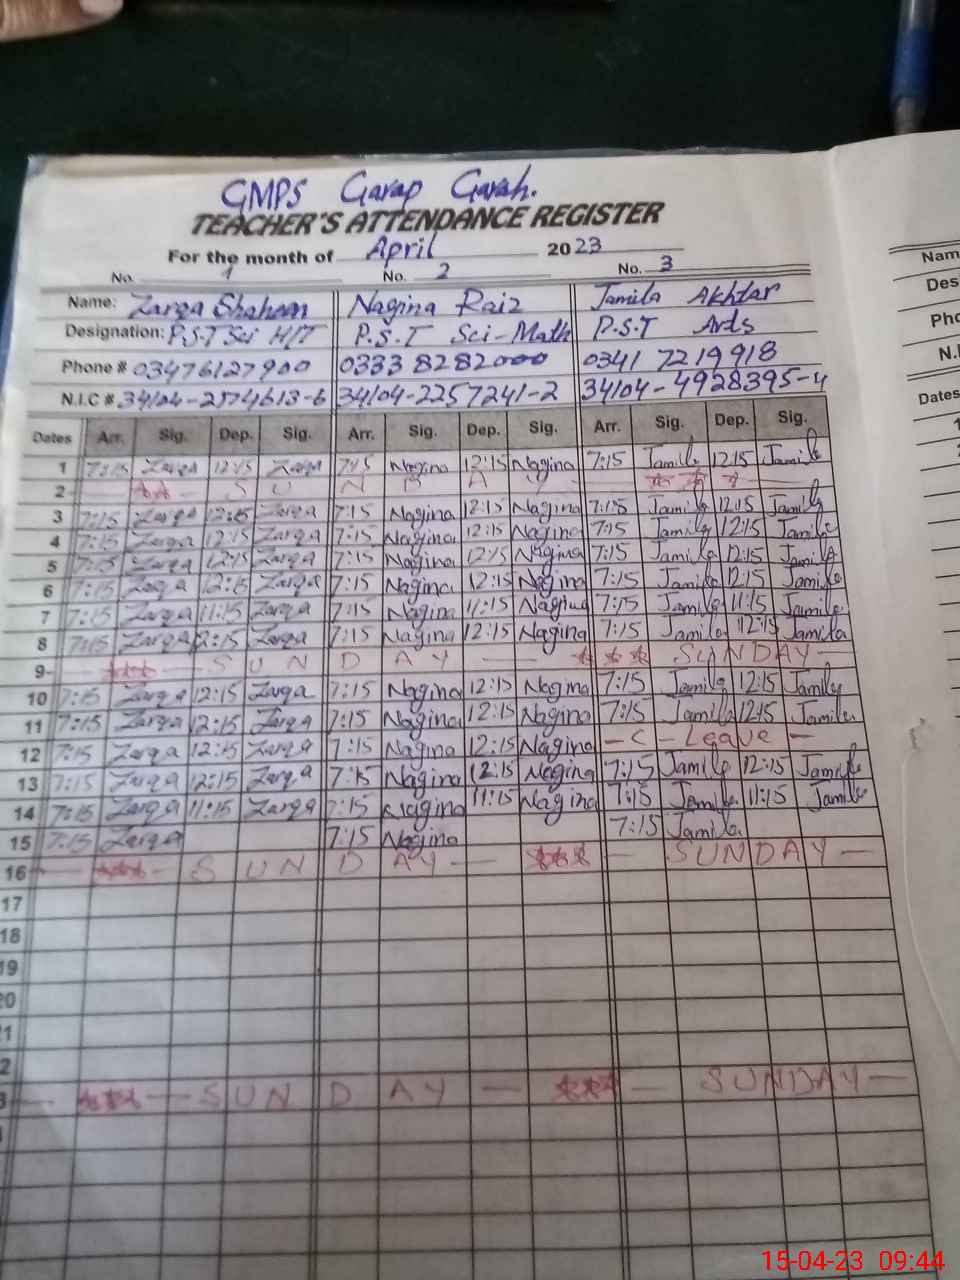 GMPS Garap Garah.
TEACHER'S ATTENDANCE REGISTER
For the month of April 2023
No. 1 No. 2 No. 3
Name: Zarqa Shaheen Nagina Raiz Jamila Akhtar
Designation: P.S.T Sci H/T P.S.T Sci-Math P.S.T Arts
Phone # 03476127900 0333 8282000 0341 7219918
N.I.C # 34104-2574613-6 34104-2257241-2 34104-4928395-4
Dates Arr. Sig. Dep. Sig. Arr. Sig. Dep. Sig. Arr. Sig. Dep. Sig.
1 7:15 Zarqa 12:15 Zarqa 7:15 Nagina 12:15 Nagina 7:15 Jamila 12:15 Jamila
2 SUNDAY
3 7:15 Zarqa 12:15 Zarqa 7:15 Nagina 12:15 Nagina 7:15 Jamila 12:15 Jamila
4 7:15 Zarqa 12:15 Zarqa 7:15 Nagina 12:15 Nagina 7:15 Jamila 12:15 Jamila
5 7:15 Zarqa 12:15 Zarqa 7:15 Nagina 12:15 Nagina 7:15 Jamila 12:15 Jamila
6 7:15 Zarqa 12:15 Zarqa 7:15 Nagina 12:15 Nagina 7:15 Jamila 12:15 Jamila
7 7:15 Zarqa 11:15 Zarqa 7:15 Nagina 11:15 Nagina 7:15 Jamila 11:15 Jamila
8 7:15 Zarqa 12:15 Zarqa 7:15 Nagina 12:15 Nagina 7:15 Jamila 12:15 Jamila
9 SUNDAY SUNDAY
10 7:15 Zarqa 12:15 Zarqa 7:15 Nagina 12:15 Nagina 7:15 Jamila 12:15 Jamila
11 7:15 Zarqa 12:15 Zarqa 7:15 Nagina 12:15 Nagina 7:15 Jamila 12:15 Jamila
12 7:15 Zarqa 12:15 Zarqa 7:15 Nagina 12:15 Nagina - C - Leave -
13 7:15 Zarqa 12:15 Zarqa 7:15 Nagina 12:15 Nagina 7:15 Jamila 12:15 Jamila
14 7:15 Zarqa 11:15 Zarqa 7:15 Nagina 11:15 Nagina 7:15 Jamila 11:15 Jamila
15 7:15 Zarqa 7:15 Nagina 7:15 Jamila
16 SUNDAY SUNDAY
17
18
19
20
SUNDAY SUNDAY
Dates
15-04-23 09:44